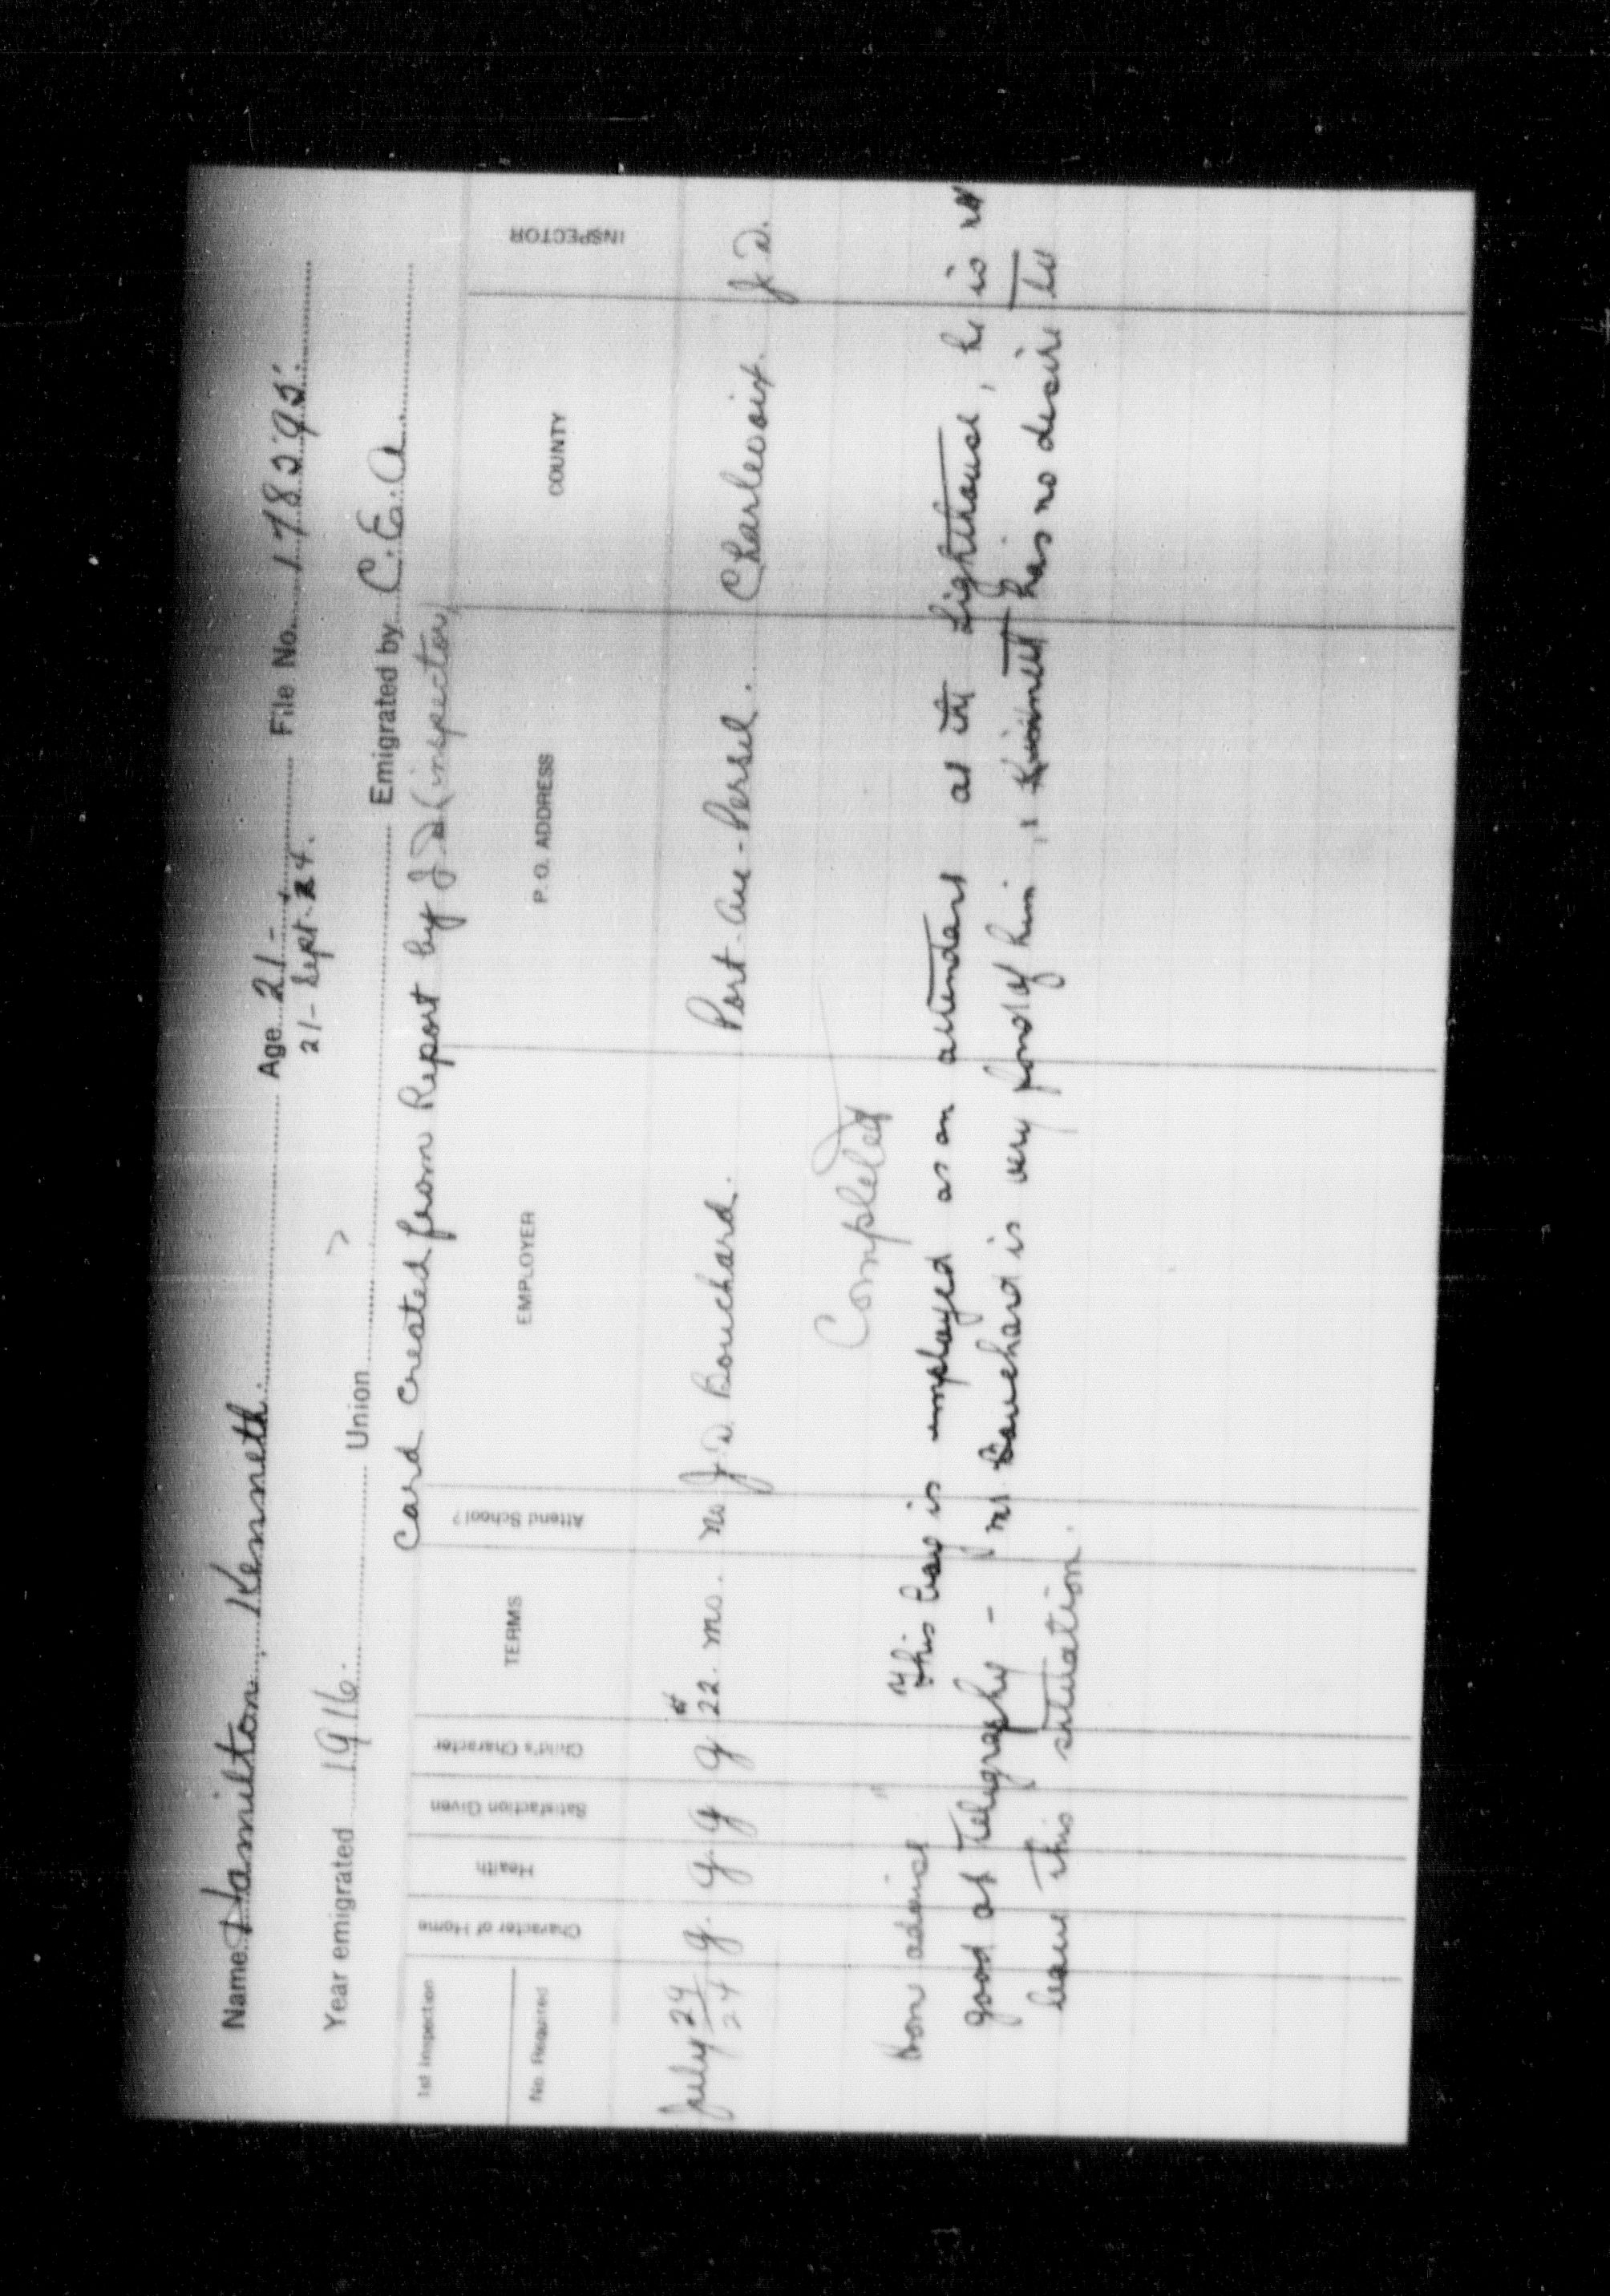 Name Hamilton, Kenneth. Age 21- File No. 178295.
21- Sept. 24.
Year emigrated 1916. Union ? Emigrated by C.E.A.
Card created from Report by J.D. (inspector)
1st Inspection
No. Required
Character of Home
Health
Satisfaction Given
Child's Character
TERMS
Attend School?
EMPLOYER
P. O. ADDRESS
COUNTY
INSPECTOR
July 24/24 g. g. g g $22. mo. No. J. D. Bouchard. Port-au-Persil. Charlevoix. J.D.
Completed
This is employed as an attendant at the Lighthouse, he is
good at telegraphy - Mr Bouchard is very fond of him, & Kenneth has no desire to
leave this situation.